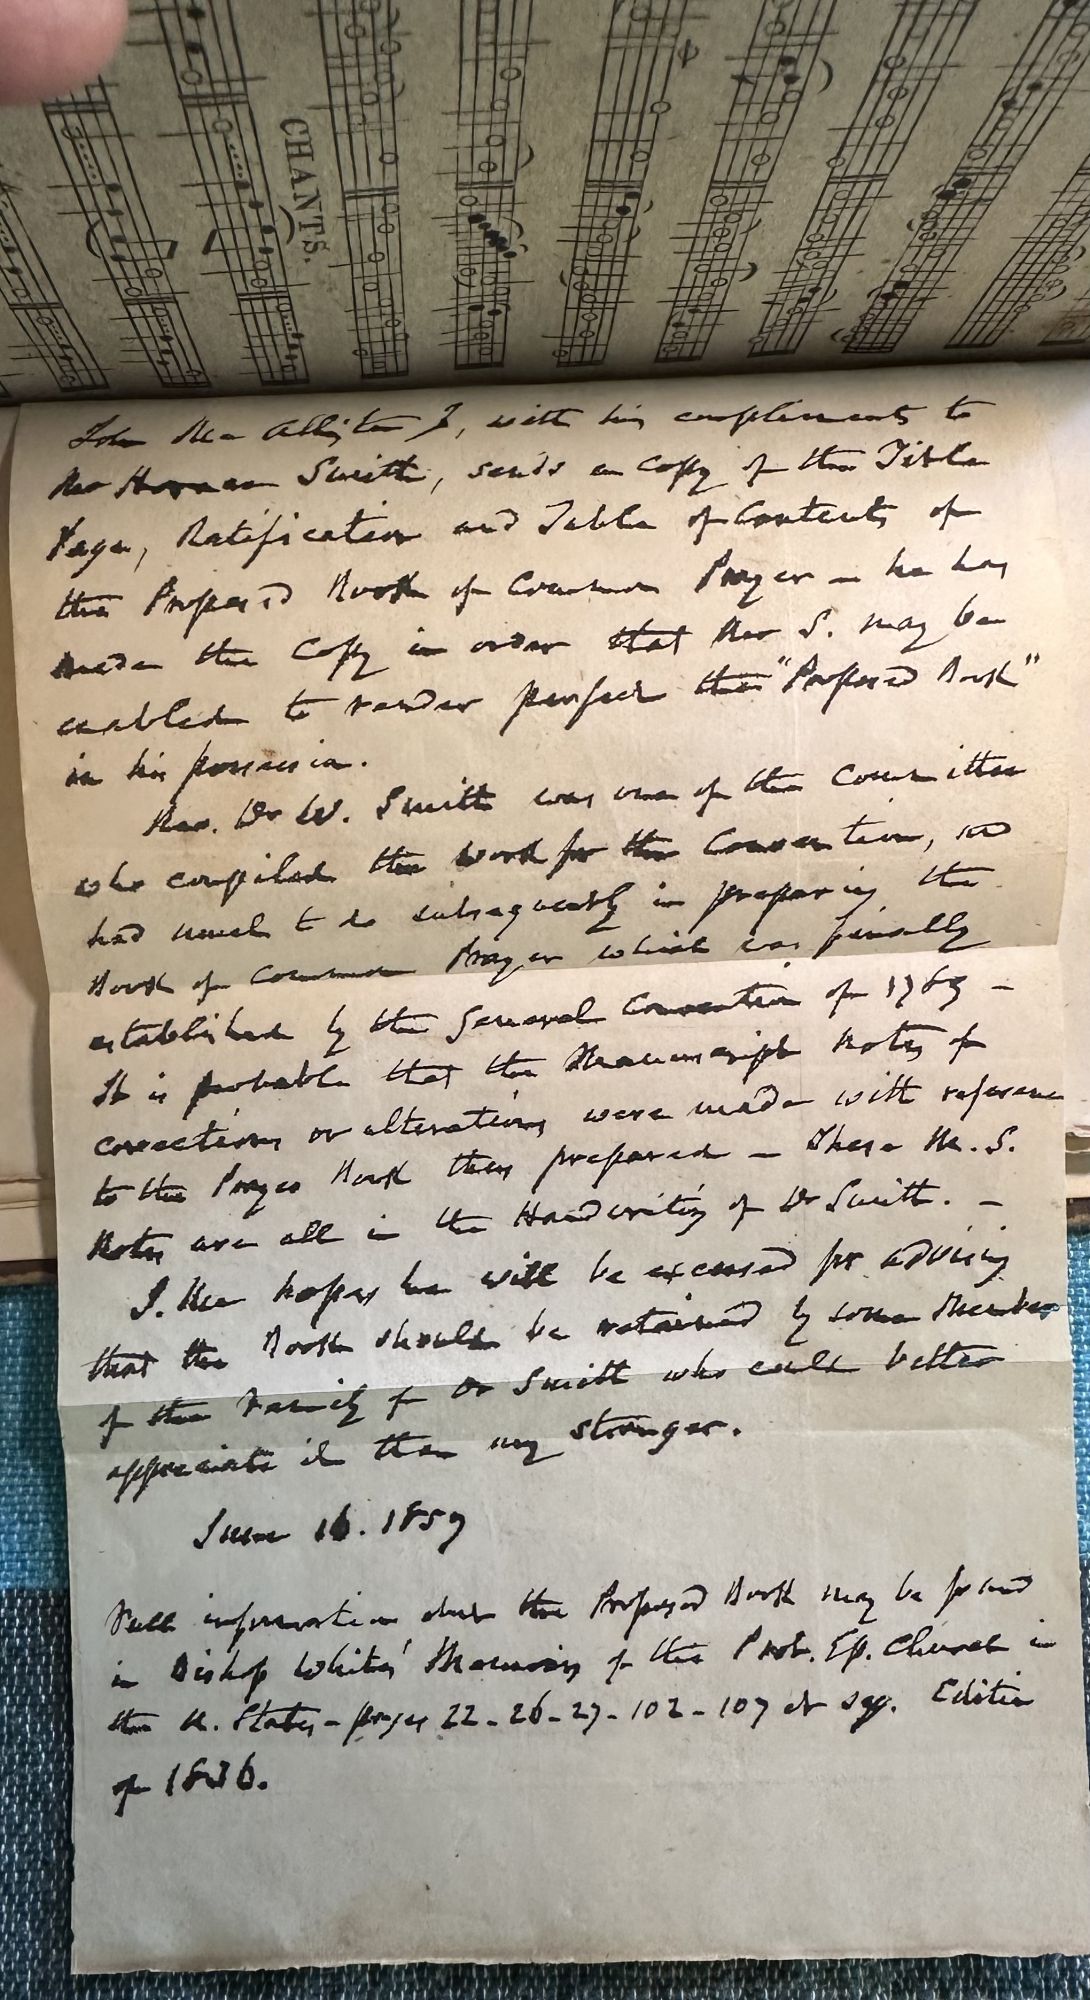 CHANTS.
John McAllister Jr, with his compliments to
Mr Horace Smith, sends a copy of the Title
Page, Ratification and Table of Contents of
the Proposed Book of Common Prayer – he has
made the Copy in order that Mr S. may be
enabled to render perfect the "Proposed Book"
in his possession.
Rev. Dr W. Smith was one of the Committee
who compiled the work for the Convention, and
had much to do subsequently in preparing the
Book of Common Prayer which was finally
established by the General Convention of 1789 –
It is probable that the Manuscript Notes of
corrections or alterations were made with reference
to the Prayer Book then prepared – These M.S.
Notes are all in the Handwriting of Dr Smith. –
J. Mc hopes he will be excused for advising
that the Book should be retained by some Member
of the Family of Dr Smith who could better
appreciate it than any stranger.
June 16. 1857
Full information about the Proposed Book may be found
in Bishop White's Memoirs of the Prot. Ep. Church in
the U. States – pages 22 - 26 - 27 - 102 - 107 et sqq. Edition
of 1836.